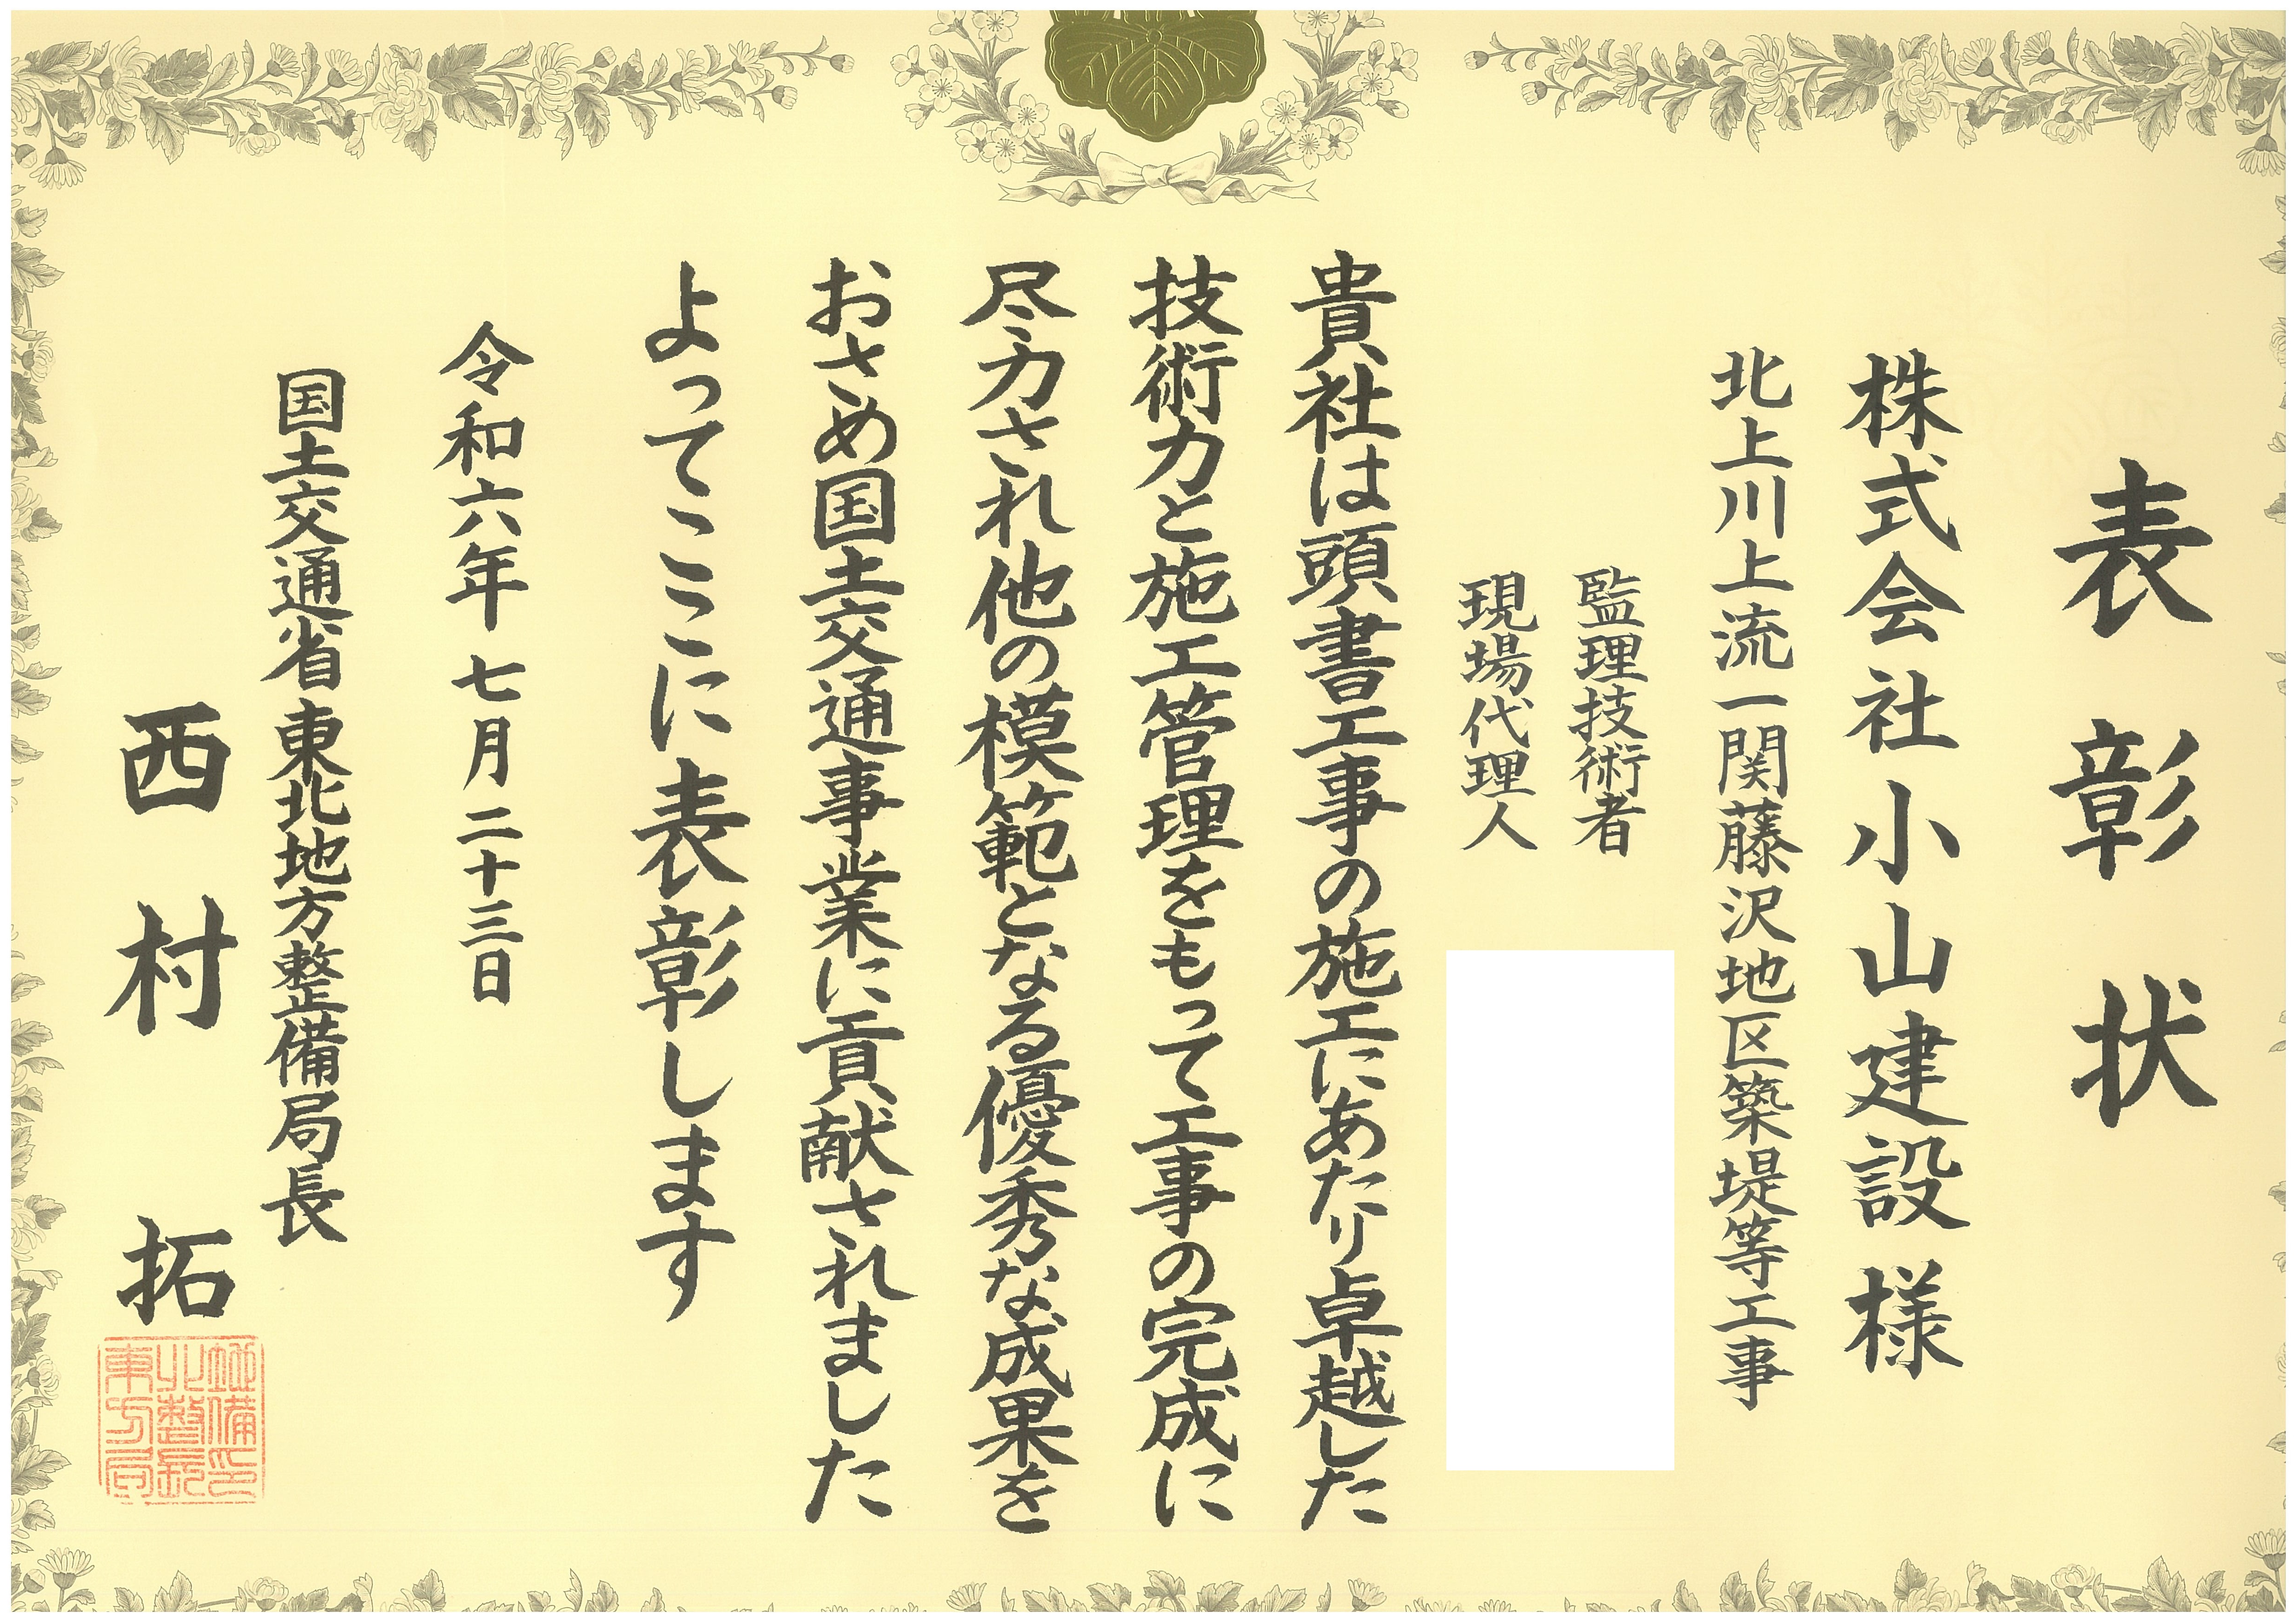 表彰状
株式会社小山建設様
北上川上流一関藤沢地区築堤等工事
監理技術者
現場代理人
貴社は頭書工事の施工にあたり卓越した
技術力と施工管理をもって工事の完成に
尽力され他の模範となる優秀な成果を
おさめ国土交通事業に貢献されました
よってここに表彰します
令和六年七月二十三日
国土交通省東北地方整備局長
西村拓